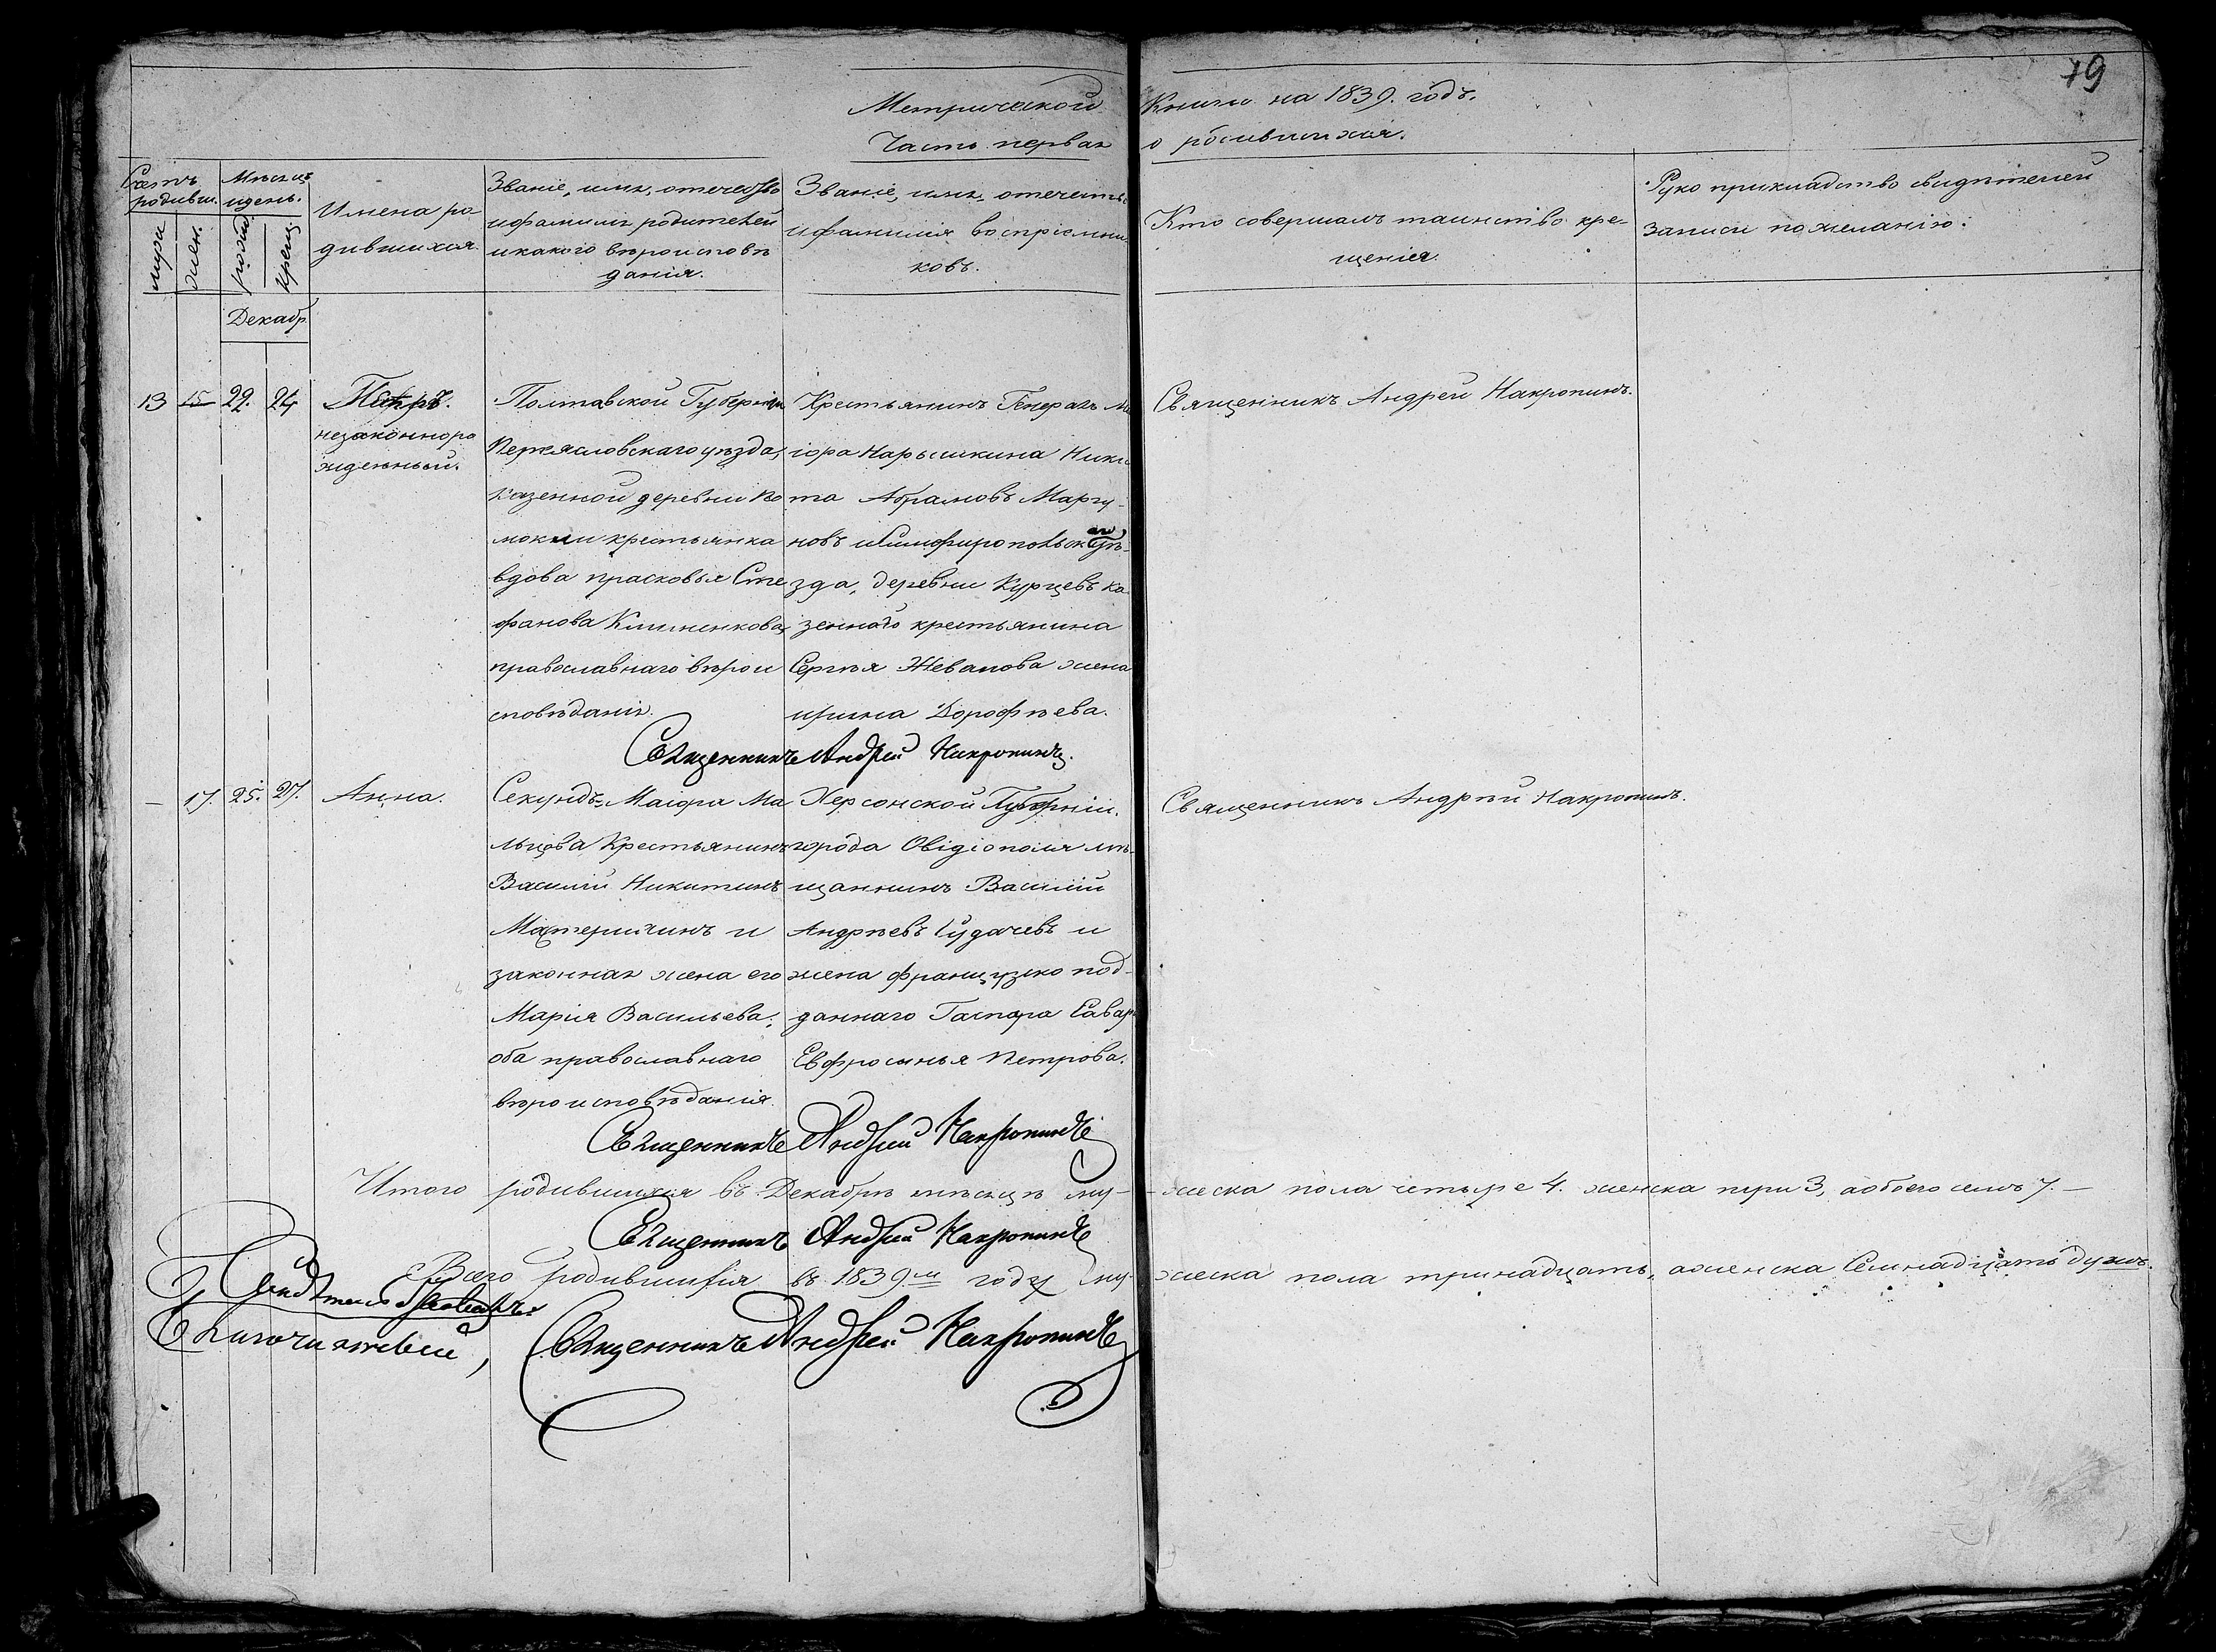 79
Метрической Книги на 1839. годъ.
Часть первая о родившихся.
Счетъ родивш.
муж.
жен.
Мѣсяцъ и день.
рожд.
крещ.
Имена ро-
дившихся.
Званіе, имя, отечество
и фамилія родителей
и какого вѣроисповѣ
данія.
Званіе, имя, отечество
и фамилія воспріемни-
ковъ.
Кто совершалъ таинство кре-
щенія.
Рукоприкладство свидѣтелей
записи по желанію.
Декабр.
13 15 22. 24
Петръ.
незаконноро
жденный.
Полтавской Губерніи
Переясловскаго уѣзда,
казенной деревни
крестьянка
вдова Прасковья Сте
фанова Клименкова,
православнаго вѣрои
сповѣданія.
Крестьянинъ Генералъ Ма
іора Нарышкина Ники
та Абрамовъ Маргу-
новъ и Симферопольскаго уѣ-
зда, деревни Курцевъ ка
зеннаго крестьянина
Сергѣя Жевапова жена
Ирина Дорофѣева.
Священникъ Андрей Накропинъ.
Священникъ Андрей Накропинъ.
— 17. 25. 27.
Анна.
Секундъ-Маіора Ма
льцова Крестьянинъ
Василій Никитинъ
Материшинъ и
законная жена его
Марія Васильева;
оба православнаго
вѣроисповѣданія.
Херсонской Губерніи,
города Овидіополя мѣ-
щанинъ Василій
Андрѣевъ Гудачевъ и
жена французко под-
даннаго Гаспара Савар
Евфросинья Петрова.
Священникъ Андрѣй Накропинъ.
Священникъ Андрей Накропинъ
Итого родившихся въ Декабрѣ мѣсяцѣ му-жеска пола четыре 4. женска три 3, а обоего семь 7. —
Священникъ Андрей Накропинъ
Всего родившихся въ 1839.м году му-жеска пола тринадцать, а женска семнадцать душъ.
Священникъ Андрей Накропинъ